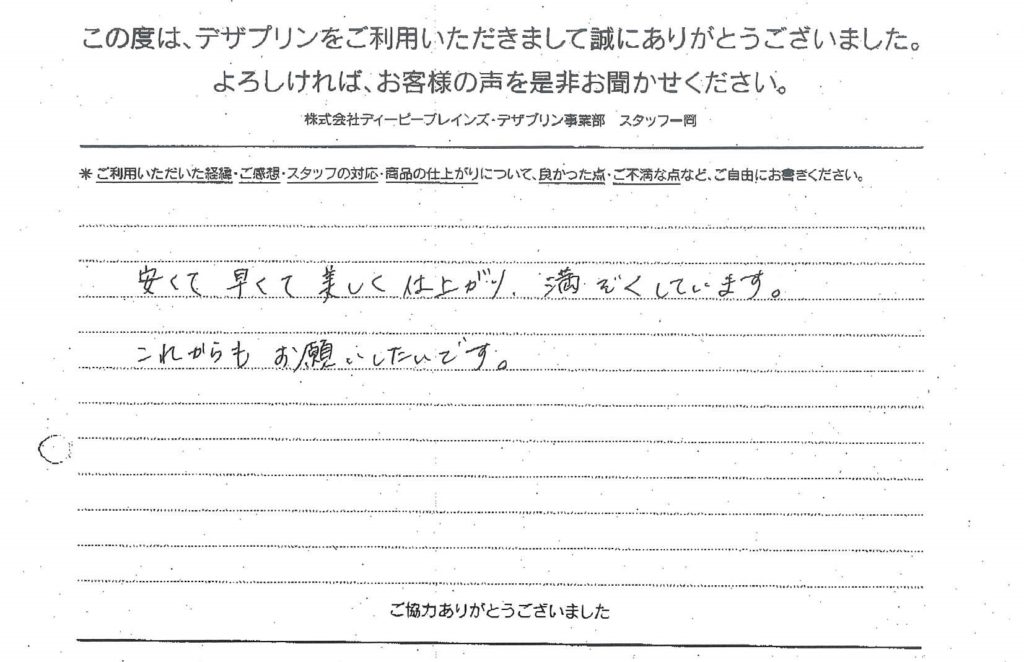 この度は、デザプリンをご利用いただきまして誠にありがとうございました。
よろしければ、お客様の声を是非お聞かせください。
株式会社ディーピーブレインズ・デザプリン事業部　スタッフ一同
＊ご利用いただいた経緯・ご感想・スタッフの対応・商品の仕上がりについて、良かった点・ご不満な点など、ご自由にお書きください。
安くて 早くて 美しく 仕上がり、満ぞくしています。
これからも お願いしたいです。
ご協力ありがとうございました